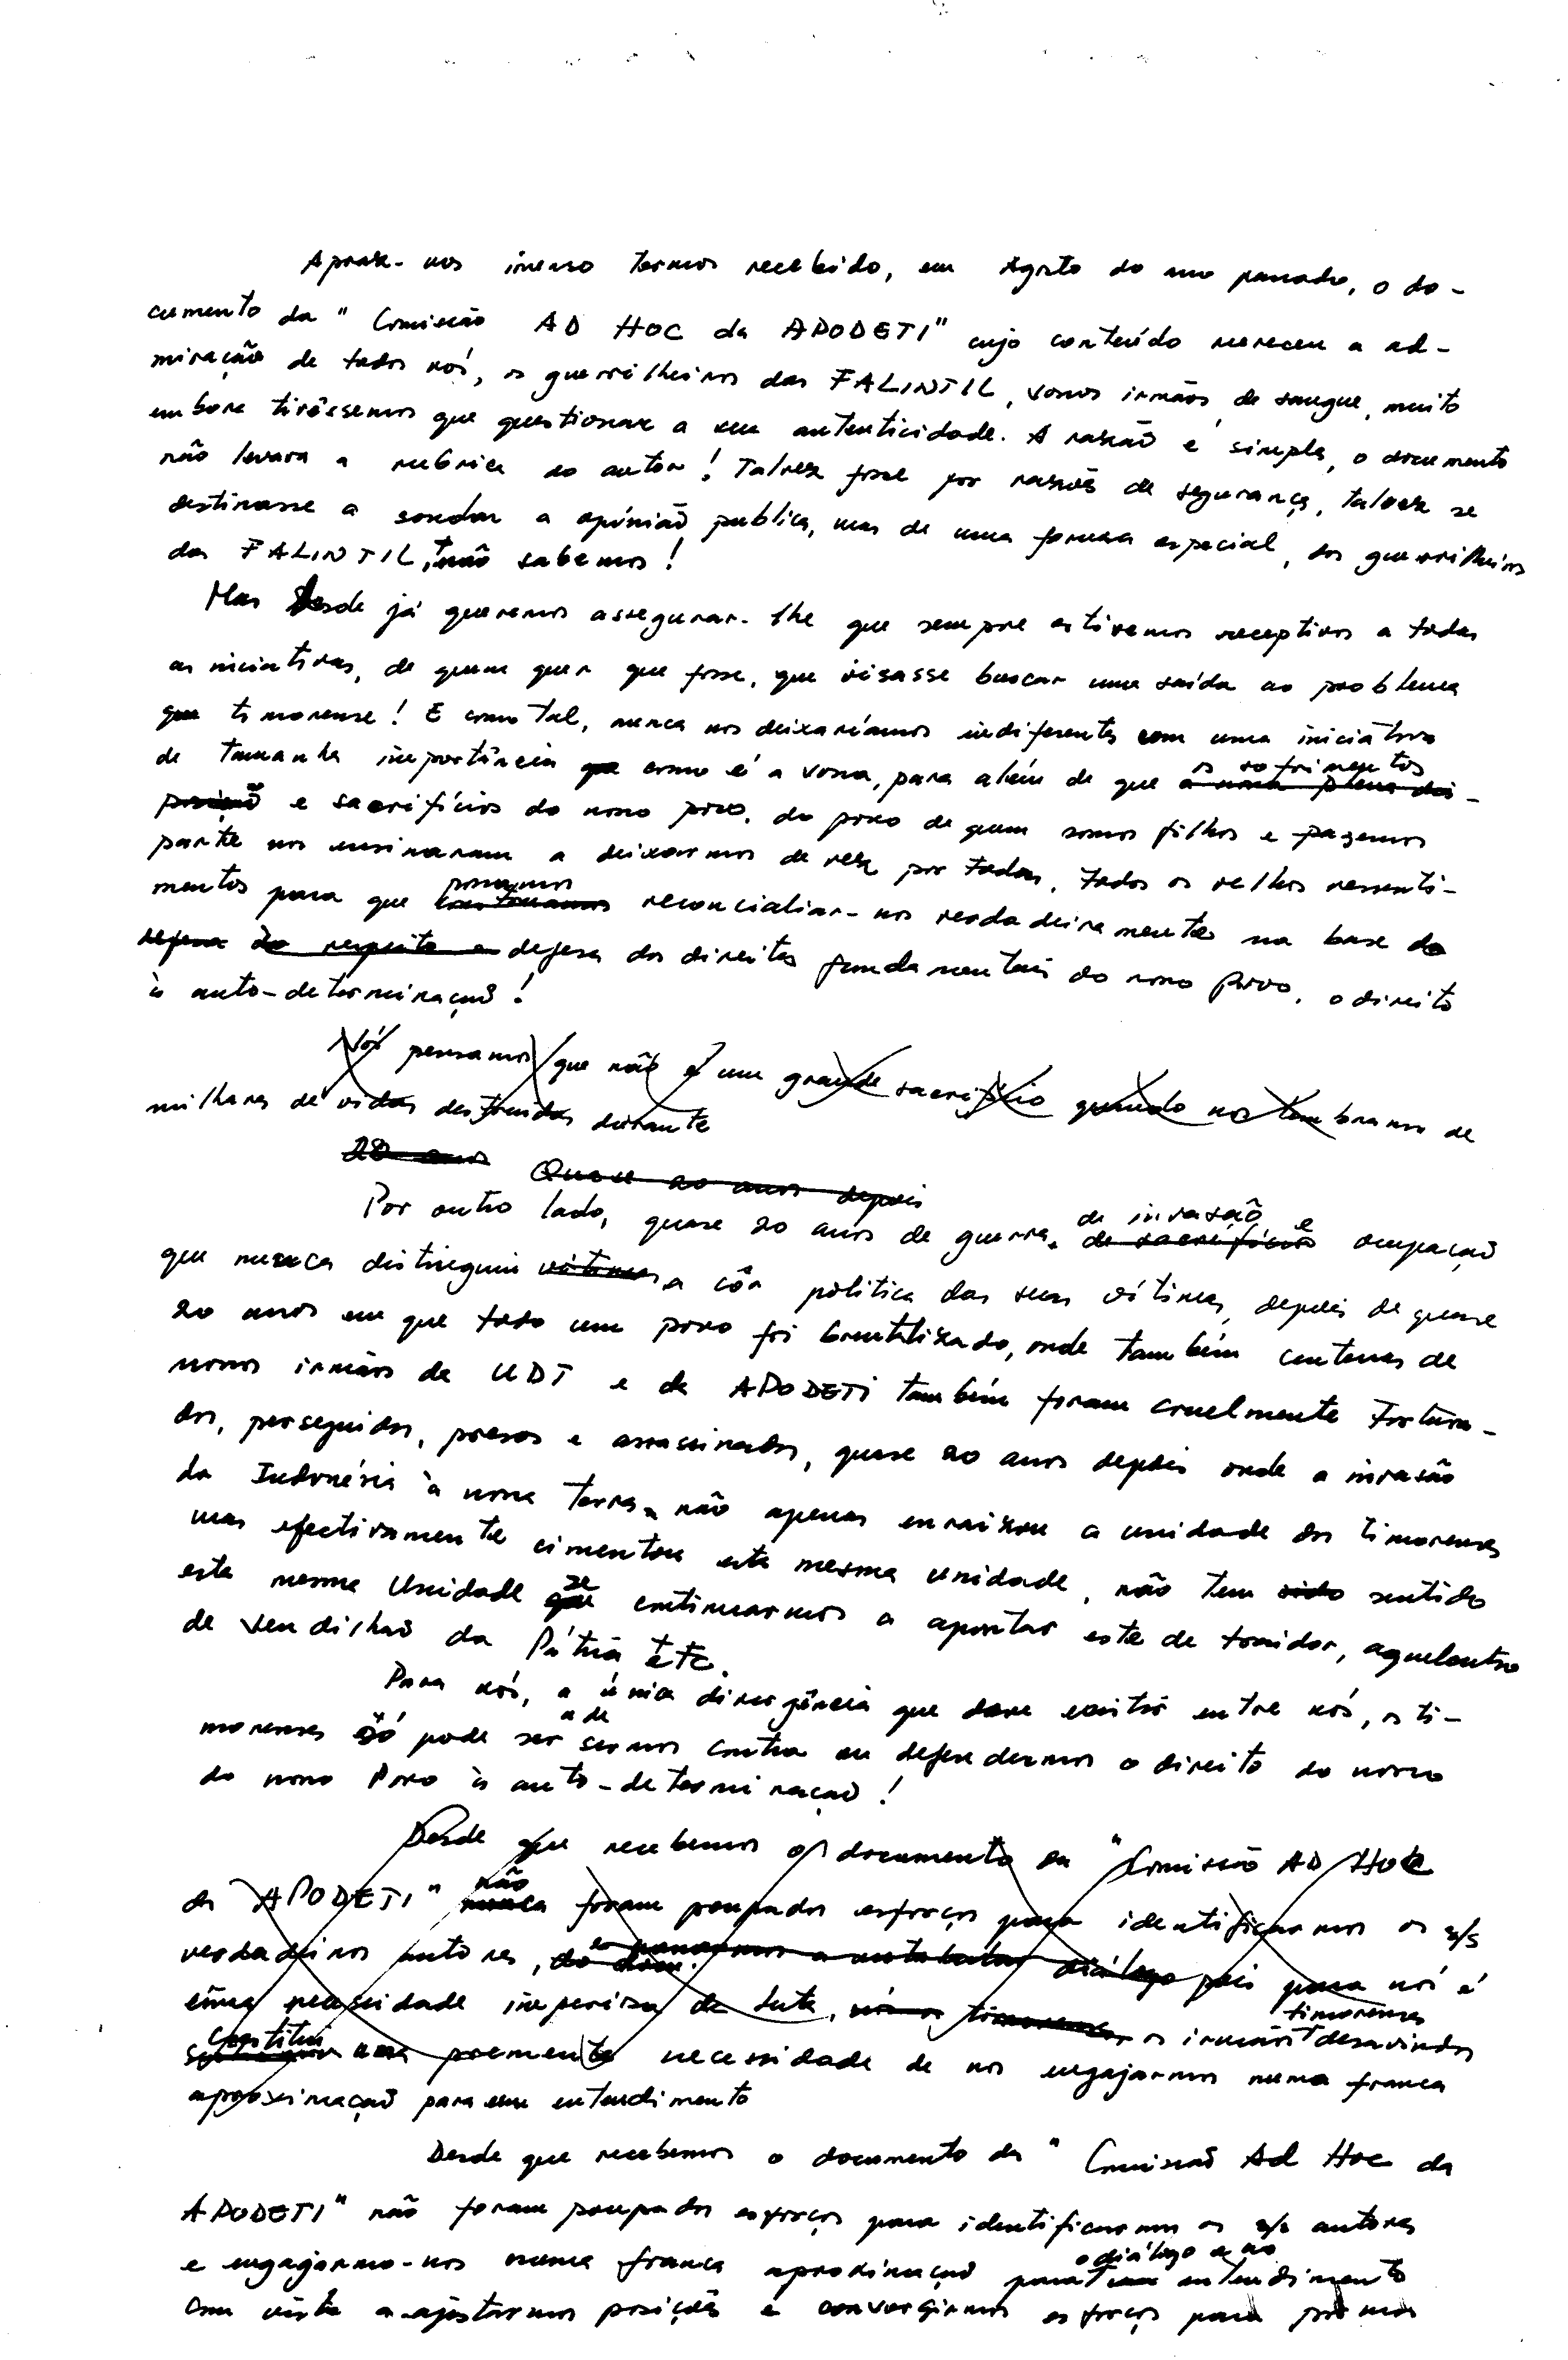 Apraz-nos imenso termos recebido, em Agosto do ano passado, o do-
cumento da "Comissão AD HOC da APODETI" cujo conteúdo mereceu a ad-
miração de todos nós, os guerrilheiros das FALINTIL, vossos irmãos de sangue, muito
embora tivéssemos que questionar a sua autenticidade. A razão é simples, o documento
não levara a rubrica do autor! Talvez fosse por razões de segurança, talvez se
destinasse a sondar a opinião publica, mas de uma forma especial, dos guerrilheiros
das FALINTIL, não sabemos!
Mas desde já queremos assegurar-lhe que sempre estivemos receptivos a todas
as iniciativas, de quem quer que fosse, que visasse buscar uma saída ao problema
que timorense! E como tal, nunca nos deixaríamos indiferentes com uma iniciativa
de tamanha importância que como é a vossa, para além de que os sofrimentos
e sacrifícios do nosso povo, do povo de quem somos filhos e fazemos
parte nos ensinaram a deixarmos de vez por todas, todos os velhos ressenti-
mentos para que possamos reconcialiar-nos verdadeiramente na base da
defesa do respeito e defesa dos direitos fundamentais do nosso Povo, o direito
à auto-determinação!
Nós pensamos que não é um grande sacrifício quando nos lembramos de
milhares de vidas destruídas durante
20 anos Quase 20 anos depois
Por outro lado, quase 20 anos de guerra, de invasão e de sacrifício ocupação
que nunca distinguiu vítimas a côr política das suas vítimas, depois de quase
20 anos em que todo um povo foi brutalizado, onde também centenas de
nossos irmãos de UDT e da APODETI também foram cruelmente tortura-
dos, perseguidos, presos e assassinados, quase 20 anos depois onde a invasão
da Indonésia à nossa terra, não apenas enraizou a unidade dos timorenses
mas efectivamente cimentou esta mesma unidade, não tem sido sentido
esta mesma Unidade que se continuarmos a apontar este de traidor, aqueloutro
de vendilhão da Pátria etc.
Para nós, a única divergência que deve existir entre nós, os ti-
morenses só pode ser a de sermos contra ou defendermos o direito do nosso
do nosso Povo à auto-determinação!
Desde que recebemos o documento da "Comissão AD HOC
da APODETI" não nunca foram poupados esforços para identificarmos os s/s
verdadeiros autores, e do diálogo pois para nós é
uma necessidade imperiosa da luta, nós os timorenses, os irmãos timorenses desavindos
constitui uma premente necessidade de nos engajarmos numa franca
aproximação para um entendimento
Desde que recebemos o documento da "Comissão Ad Hoc da
APODETI" não foram poupados esforços para identificarmos os s/s autores
e engajarmo-nos numa franca aproximação para o diálogo e ao um entendimento
com vista a ajustarmos posições e convergirmos esforços para pormos